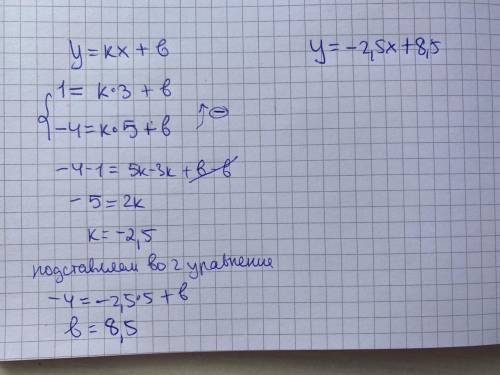 y = kx + в
1 = k·3 + в
-4 = k·5 + в
-4-1 = 5k-3k + в-в
-5 = 2k
k = -2,5
подставляем во 2 уравнение
-4 = -2,5·5 + в
в = 8,5
y = -2,5x + 8,5